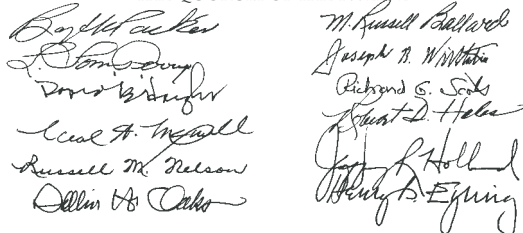 Boyd K Packer
L. Tom Perry
David B Haight
Neal A. Maxwell
Russell M. Nelson
Dallin H. Oaks
M. Russell Ballard
Joseph B. Wirthlin
Richard G. Scott
Robert D. Hales
Jeffrey R Holland
Henry B. Eyring